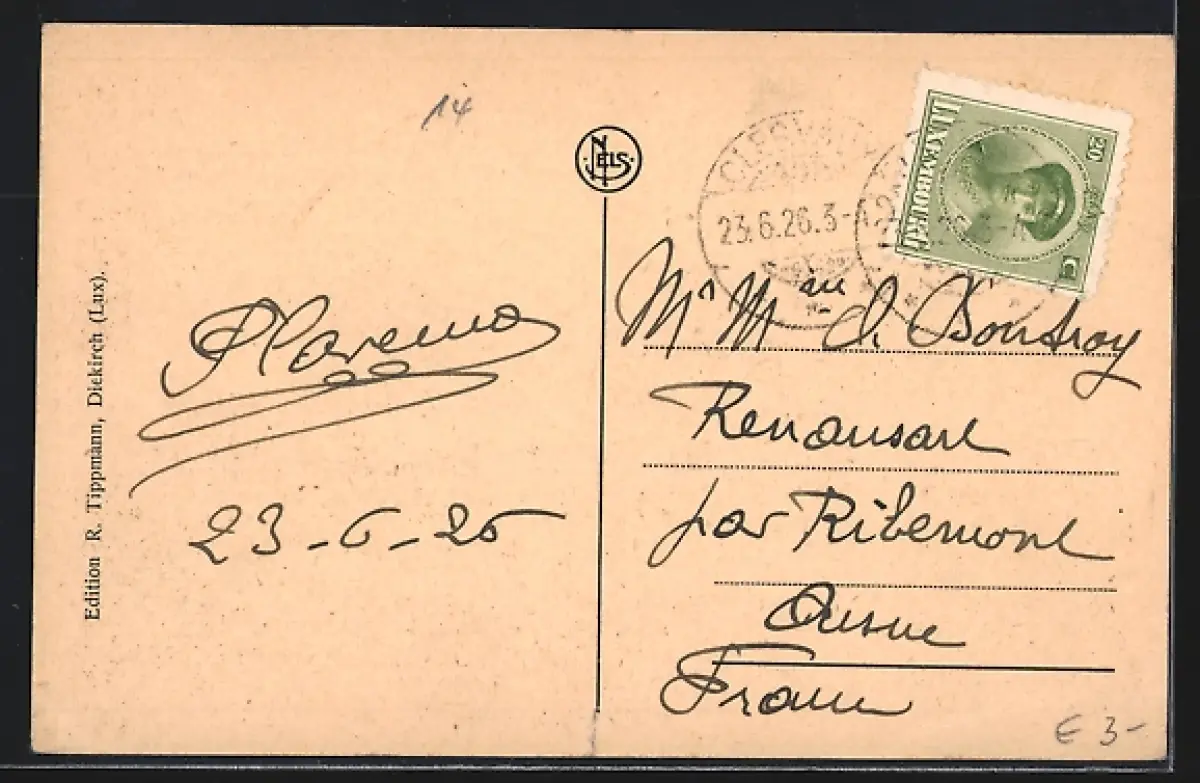 14
NELS
23.6.26.3-4
LUXEMBOURG
20
C
Edition R. Tippmann, Diekirch (Lux).
23-6-26
Mr Mme
Renansart
par Ribemont
Aisne
France
€ 3-